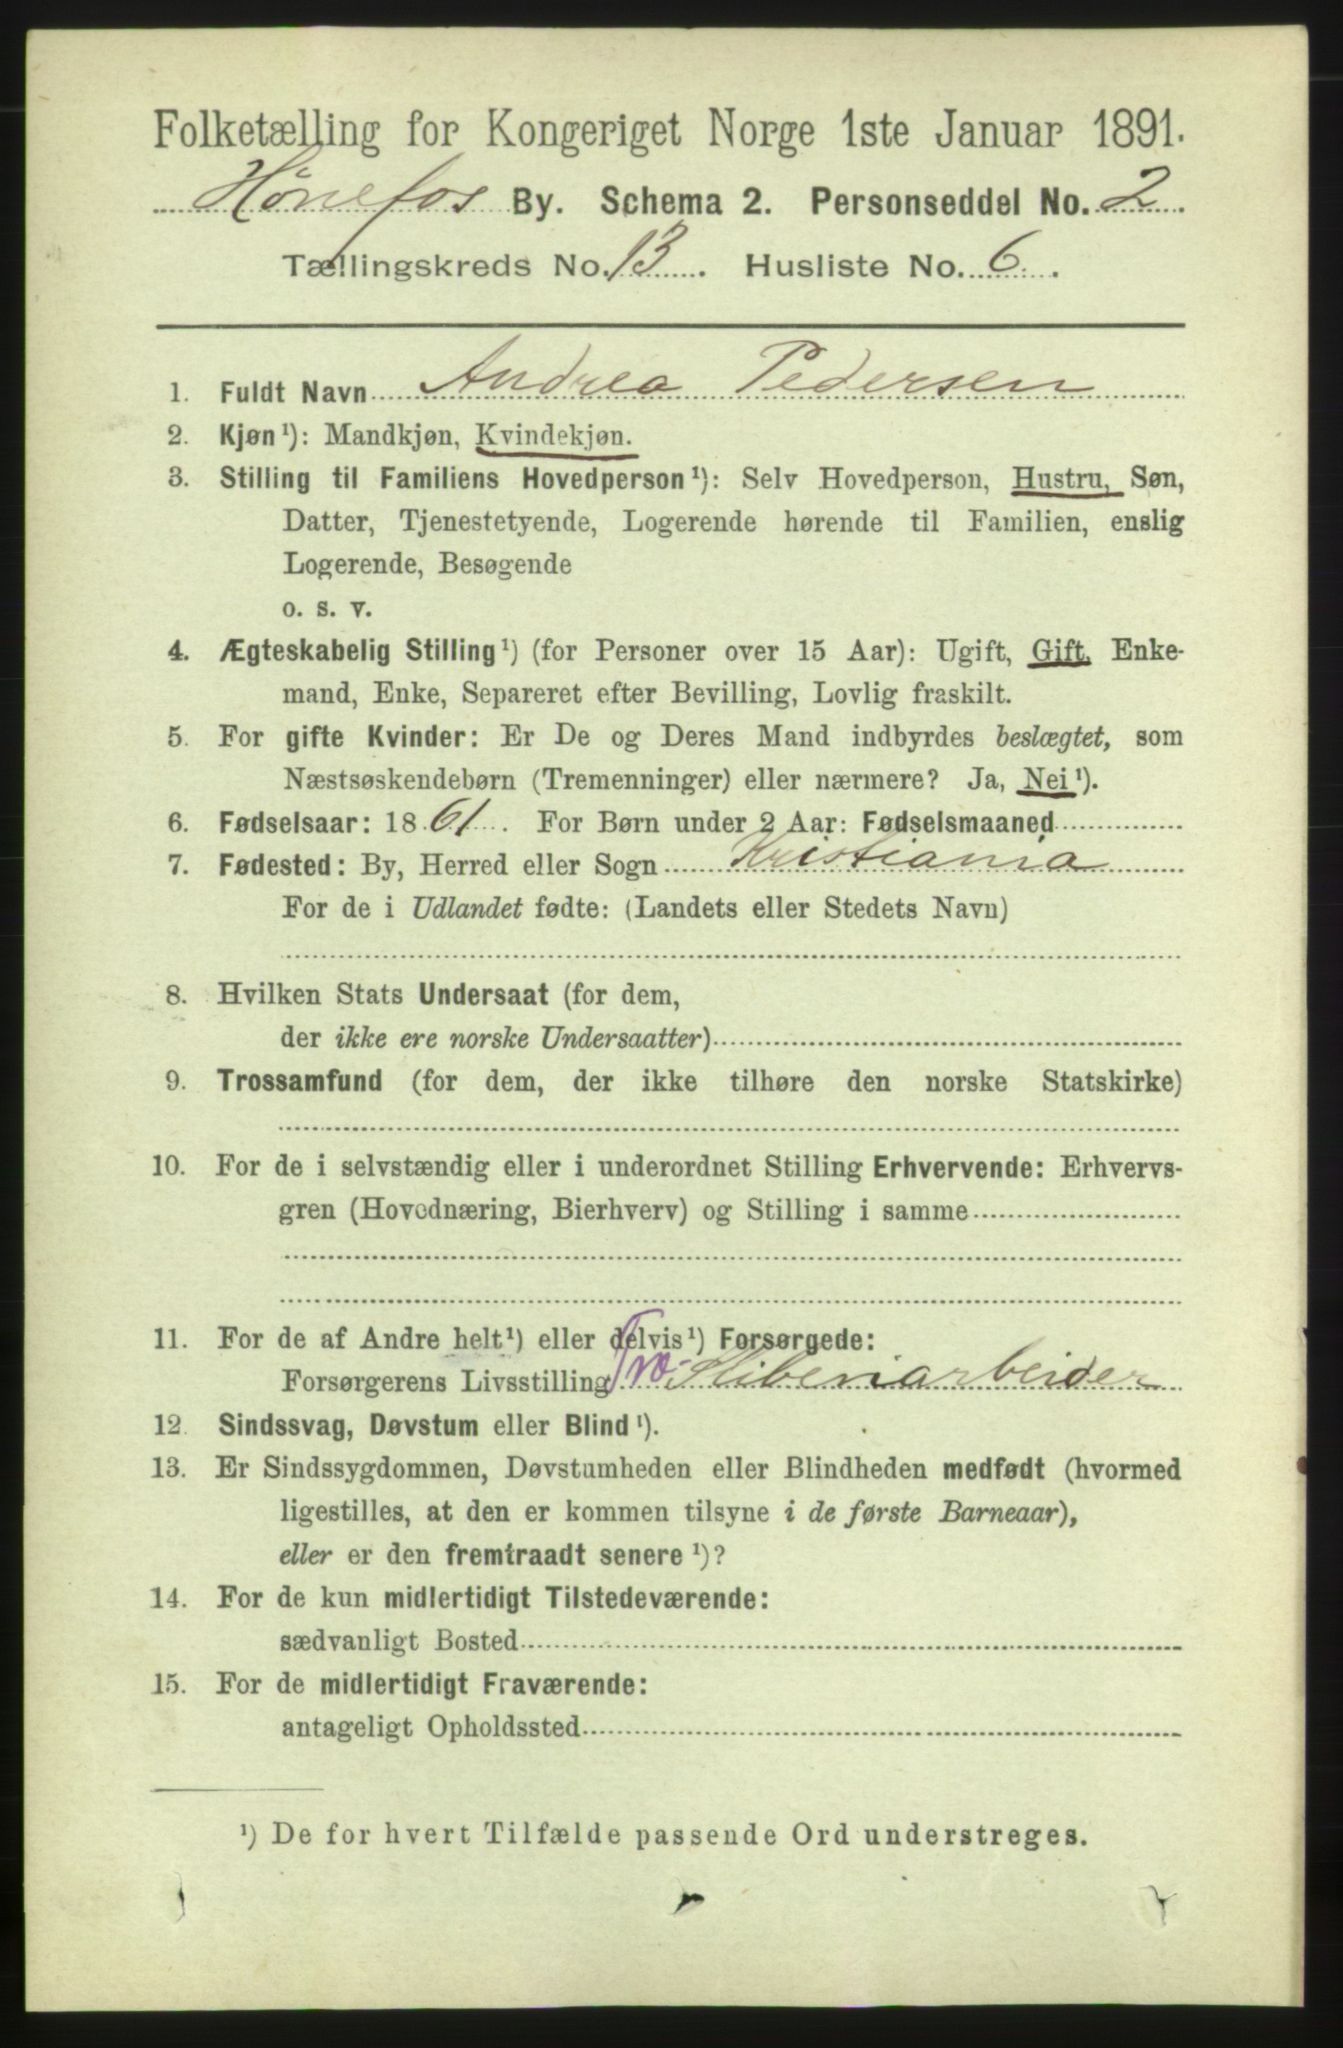 Folketælling for Kongeriget Norge 1ste Januar 1891.
Hönefos By. Schema 2. Personseddel No. 2.
Tællingskreds No. 13. Husliste No. 6.
1. Fuldt Navn Andrea Pedersen
2. Kjøn¹): Mandkjøn, Kvindekjøn.
3. Stilling til Familiens Hovedperson¹): Selv Hovedperson, Hustru, Søn,
Datter, Tjenestetyende, Logerende hørende til Familien, enslig
Logerende, Besøgende
o. s. v.
4. Ægteskabelig Stilling¹) (for Personer over 15 Aar): Ugift, Gift, Enke-
mand, Enke, Separeret efter Bevilling, Lovlig fraskilt.
5. For gifte Kvinder: Er De og Deres Mand indbyrdes beslægtet, som
Næstsøskendebørn (Tremenninger) eller nærmere? Ja, Nei¹).
6. Fødselsaar: 1861. For Børn under 2 Aar: Fødselsmaaned
7. Fødested: By, Herred eller Sogn Kristiania
For de i Udlandet fødte: (Landets eller Stedets Navn)
8. Hvilken Stats Undersaat (for dem,
der ikke ere norske Undersaatter)
9. Trossamfund (for dem, der ikke tilhøre den norske Statskirke)
10. For de i selvstændig eller i underordnet Stilling Erhvervende: Erhvervs-
gren (Hovednæring, Bierhverv) og Stilling i samme
11. For de af Andre helt¹) eller delvis¹) Forsørgede:
Forsørgerens Livsstilling Træ-Sliberiarbeider
12. Sindssvag, Døvstum eller Blind¹).
13. Er Sindssygdommen, Døvstumheden eller Blindheden medfødt (hvormed
ligestilles, at den er kommen tilsyne i de første Barneaar),
eller er den fremtraadt senere¹)?
14. For de kun midlertidigt Tilstedeværende:
sædvanligt Bosted
15. For de midlertidigt Fraværende:
antageligt Opholdssted
¹) De for hvert Tilfælde passende Ord understreges.